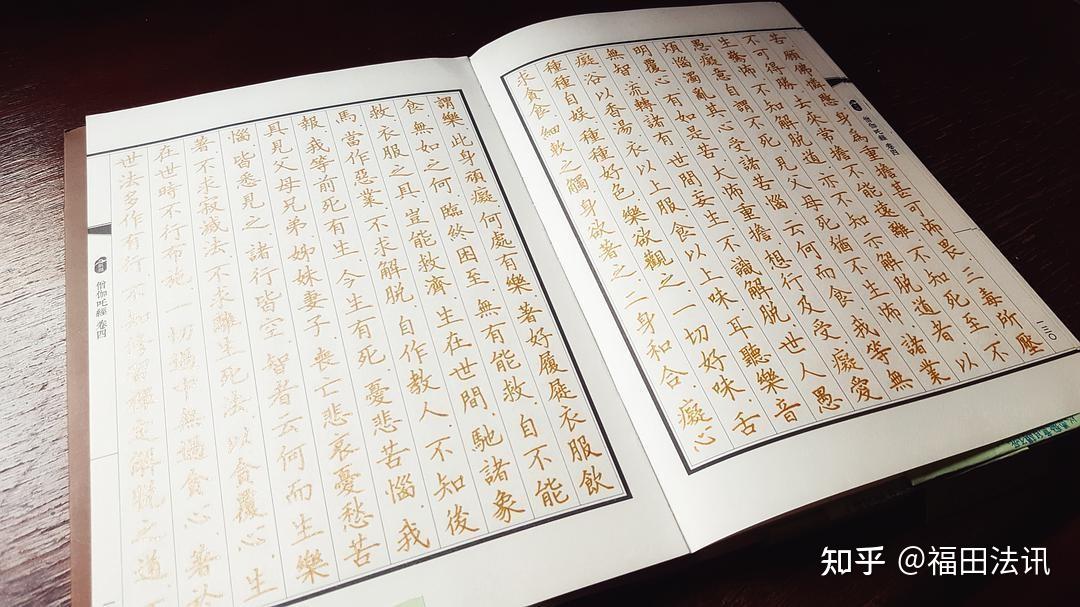 僧伽吒經 卷四
一三〇
苦 願佛憐愍 身為重擔 甚可怖畏 三毒所壓
不可得勝 去來常擔 不能遠離 不知死至 不
生驚怖 不知解脫道 亦不知示解脫道者 以
愚癡意 自謂不死 見父母死 猶不生怖 諸業
煩惱 濁亂其心 受諸苦惱 云何而食 我等無
明覆心 有如是苦 大怖重擔 想行及受 癡愛
無智 流轉諸有 世間妄生 不識解脫 世人愚
癡 浴以香湯 衣以上服 食以上味 耳聽樂音
種種自娛 種種好色 樂欲觀之 一切好味 舌
求貪食 細軟之觸 身欲著之 二身和合 癡心
謂樂.此身頑癡.何處有樂.著好履屣.衣服飲
食.無如之何.臨終困至.無有能救.自不能
救.衣服之具.豈能救濟.生在世間.馳諸象
馬.當作惡業.不求解脫.自作教人.不知後
報.我等前死有生.今生有死.憂悲苦惱.我
具見父母兄弟姊妹妻子喪亡.悲哀憂愁苦
惱.皆悉見之.諸行皆空.智者云何而生樂
著.不求寂滅法.不求離生死法.以貪覆心.生
在世時.不行布施.一切過中.無過貪心.著於
世法.多作有行.不知修習禪定解脫之道
僧伽吒經 卷四
知乎 @福田法讯